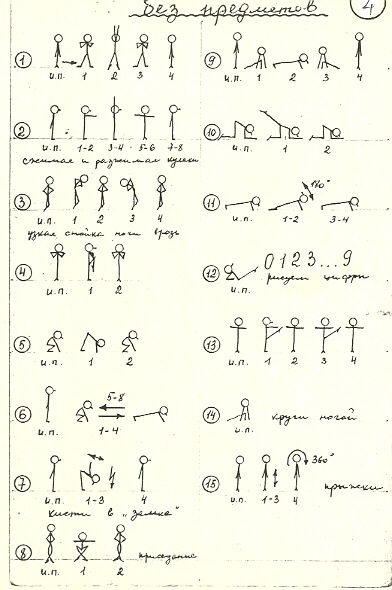 без предметов
4
1 и.п. 1 2 3 4
2 и.п. 1-2 3-4 5-6 7-8
сжимая и разжимая кулаки
3 и.п. 1 2 3 4
узкая стойка ноги врозь
4 и.п. 1 2
5 и.п. 1 2
6 и.п. 5-8 1-4
7 и.п. 1-3 4
кисти в "замке"
8 и.п. 1 2 приседание
9 и.п. 1 2 3 4
10 и.п. 1 2
11 и.п. 180° 1-2 3-4
12 и.п. 0 1 2 3 ... 9
рисуем цифры
13 и.п. 1 2 3 4
14 и.п. круги ногой
15 и.п. 1-3 4 360° прыжки